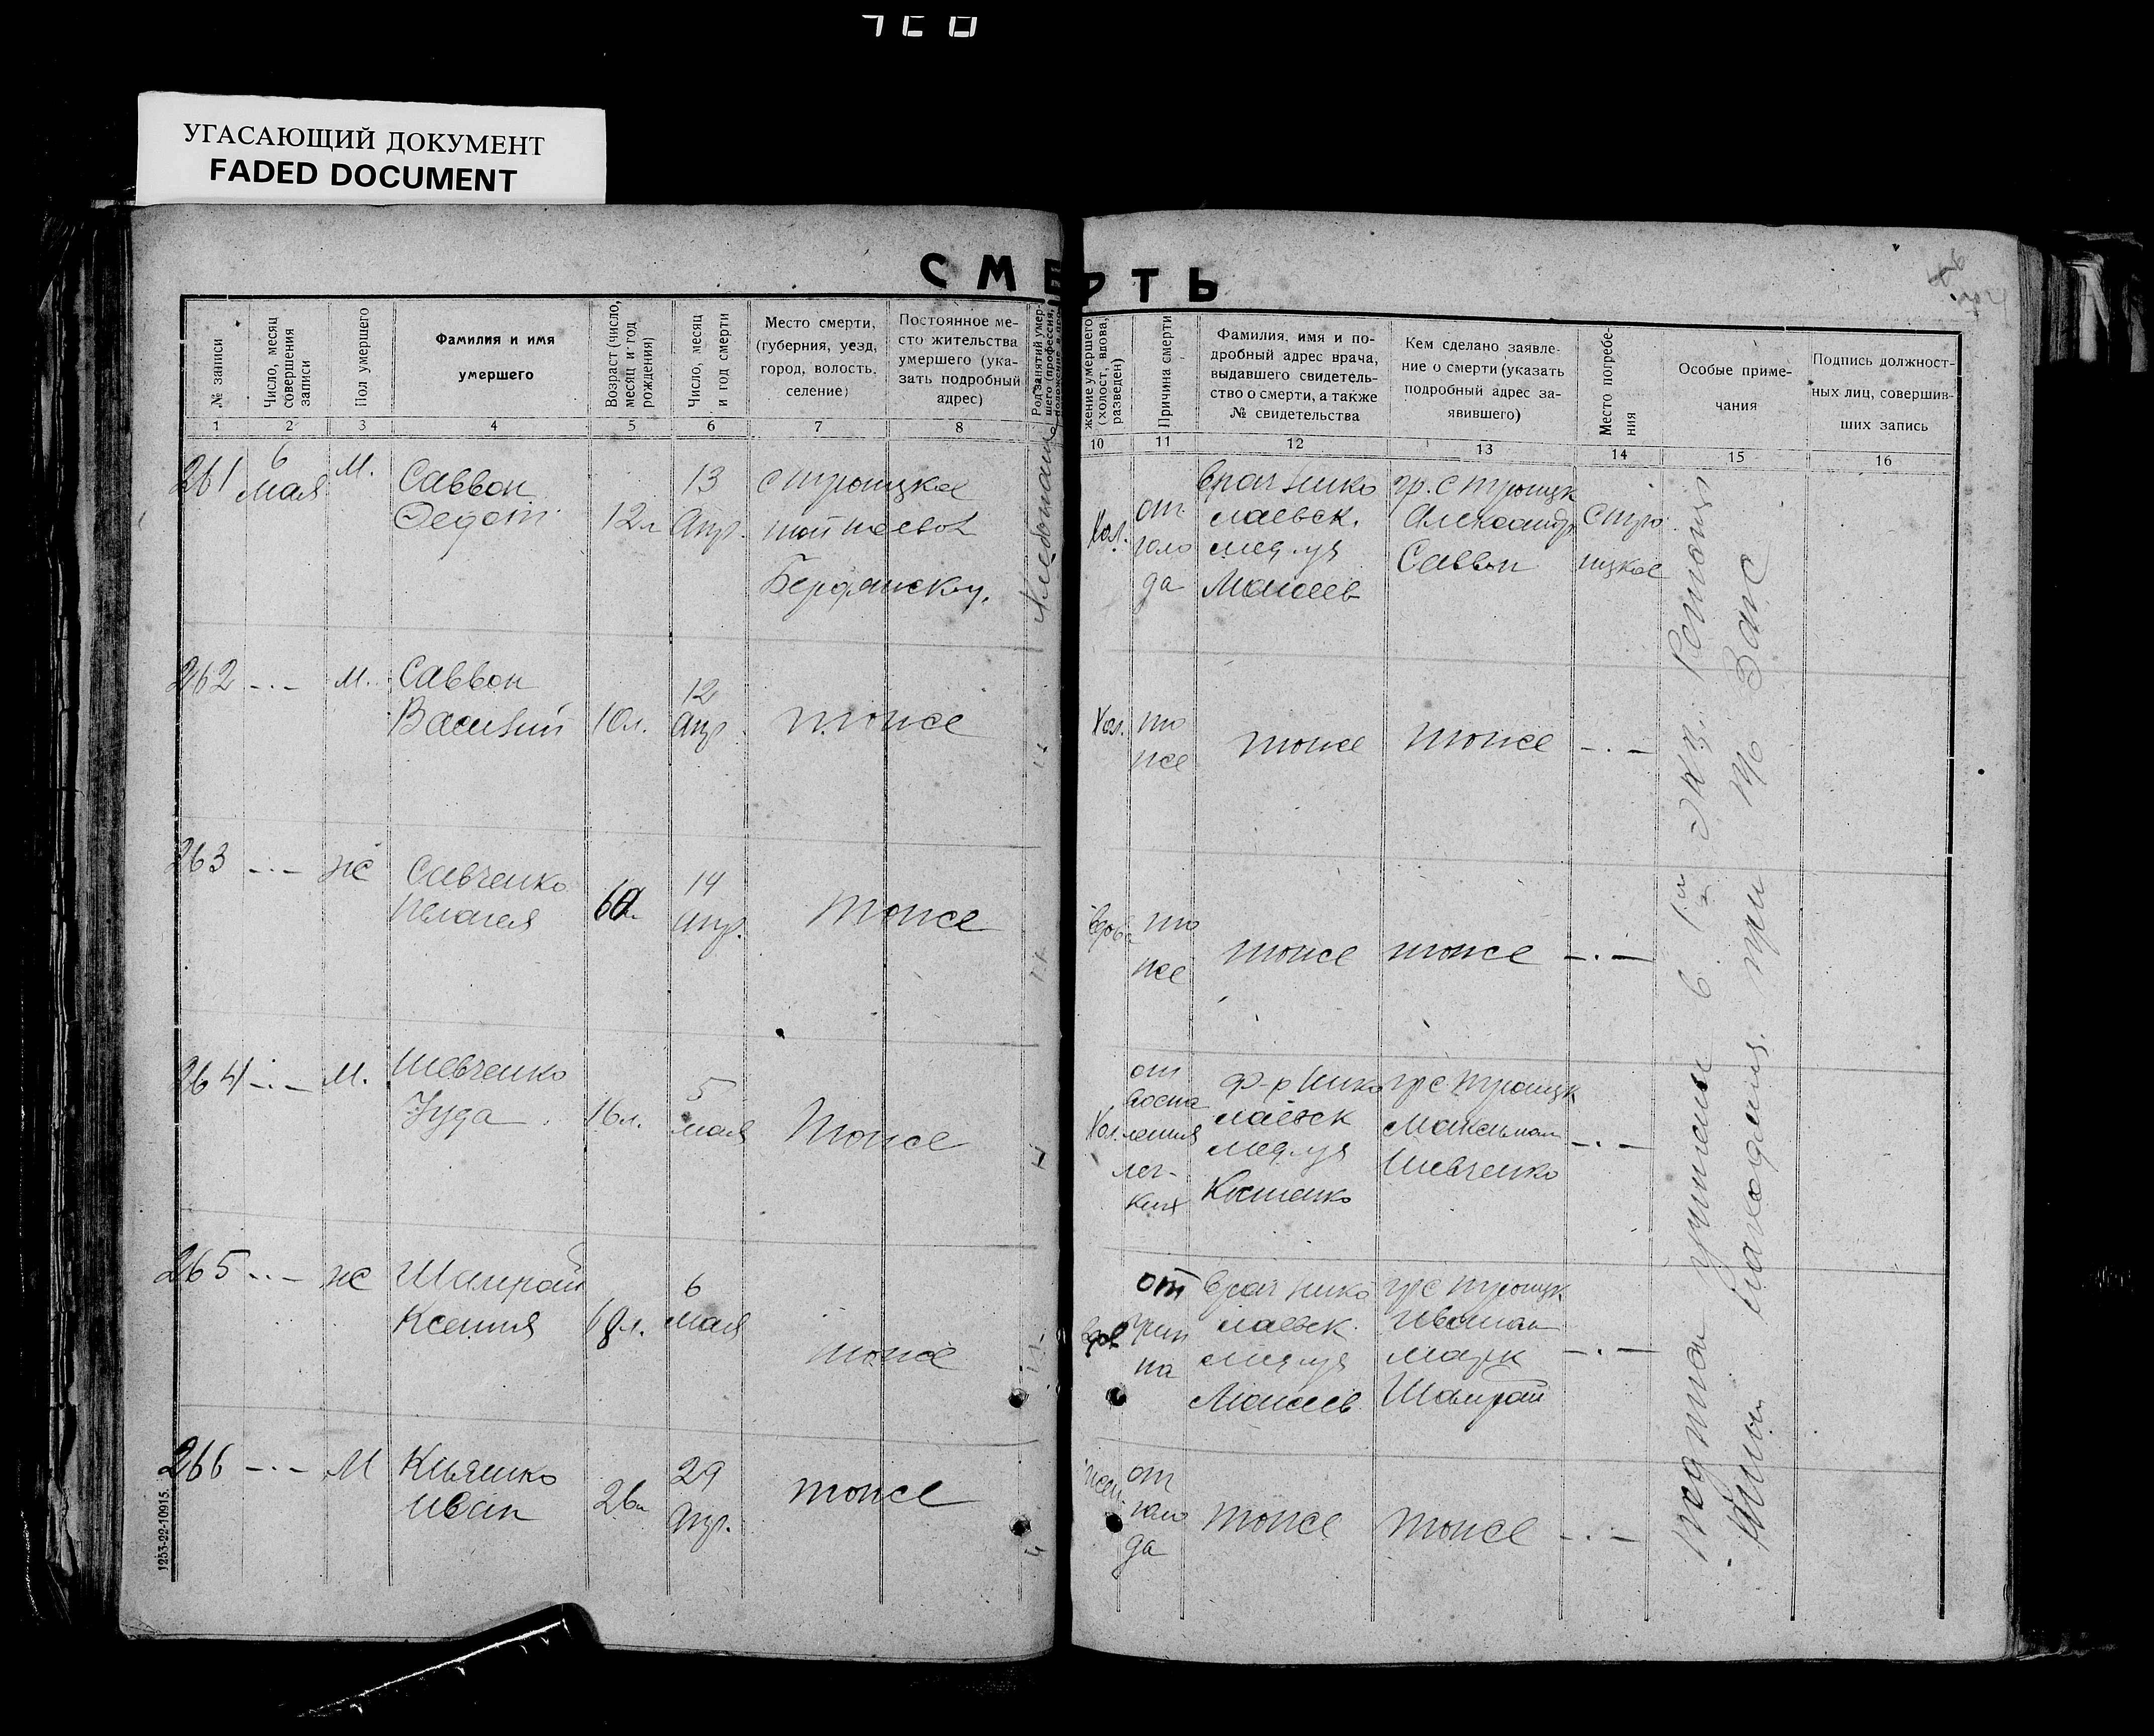 УГАСАЮЩИЙ ДОКУМЕНТ
FADED DOCUMENT
СМЕРТЬ
№ записи
Число, месяц
совершения
записи
Пол умершего
Фамилия и имя
умершего
Возраст (число,
месяц и год
рождения)
Число, месяц
и год смерти
Место смерти,
(губерния, уезд,
город, волость,
селение)
Постоянное ме-
сто жительства
умершего (ука-
зать подробный
адрес)
Род занятий умер-
шего (профессия,
жение умершего
(холост, вдова,
разведен)
Причина смерти
Фамилия, имя и по-
дробный адрес врача,
выдавшего свидетель-
ство о смерти, а также
№ свидетельства
Кем сделано заявле-
ние о смерти (указать
подробный адрес за-
явившего)
Место погребе-
ния
Особые приме-
чания
Подпись должност-
ных лиц, совершив-
ших запись
1 2 3 4 5 6 7 8 9 10 11 12 13 14 15 16
261
6
мая
М.
Саввон
Федот
12л
13
Апр.
с Троицкое
той же вол
Бердянск у.
Хлебопаш
Хол.
от
голо
да
врач Нико
лаевск.
мед. уч
Моисеев
гр. с Троицк
Александр
Саввон
с Тро
ицкое
262 -·- М.
Саввон
Василий
10л.
12
Апр.
тоже
Хол.
то
же
тоже
тоже
-·-
263 -·- ж
Савченко
Пелагея
60л
14
Апр.
тоже
вдова
то
же
тоже
тоже
-·-
264 -·- М.
Шевченко
Іуда
16л.
5
мая
тоже
Хол.
от
воспа
ления
лег-
ких
ф-р Нико
лаевск
мед. уч
гр с Троицк
Шевченко
-·-
265 -·- ж
Шамрай
Ксения
6
мая
тоже
вдов
от
грип
па
врач Нико
лаевск.
мед. уч
Моисеев
гр с Троицк
Шамрай
-·-
266 -·- М
Кияшко
Иван
26л
29
Апр.
тоже
жен.
от
голо
да
тоже
тоже
-·-
в 1м экз.
Загс
1253-22-10915.